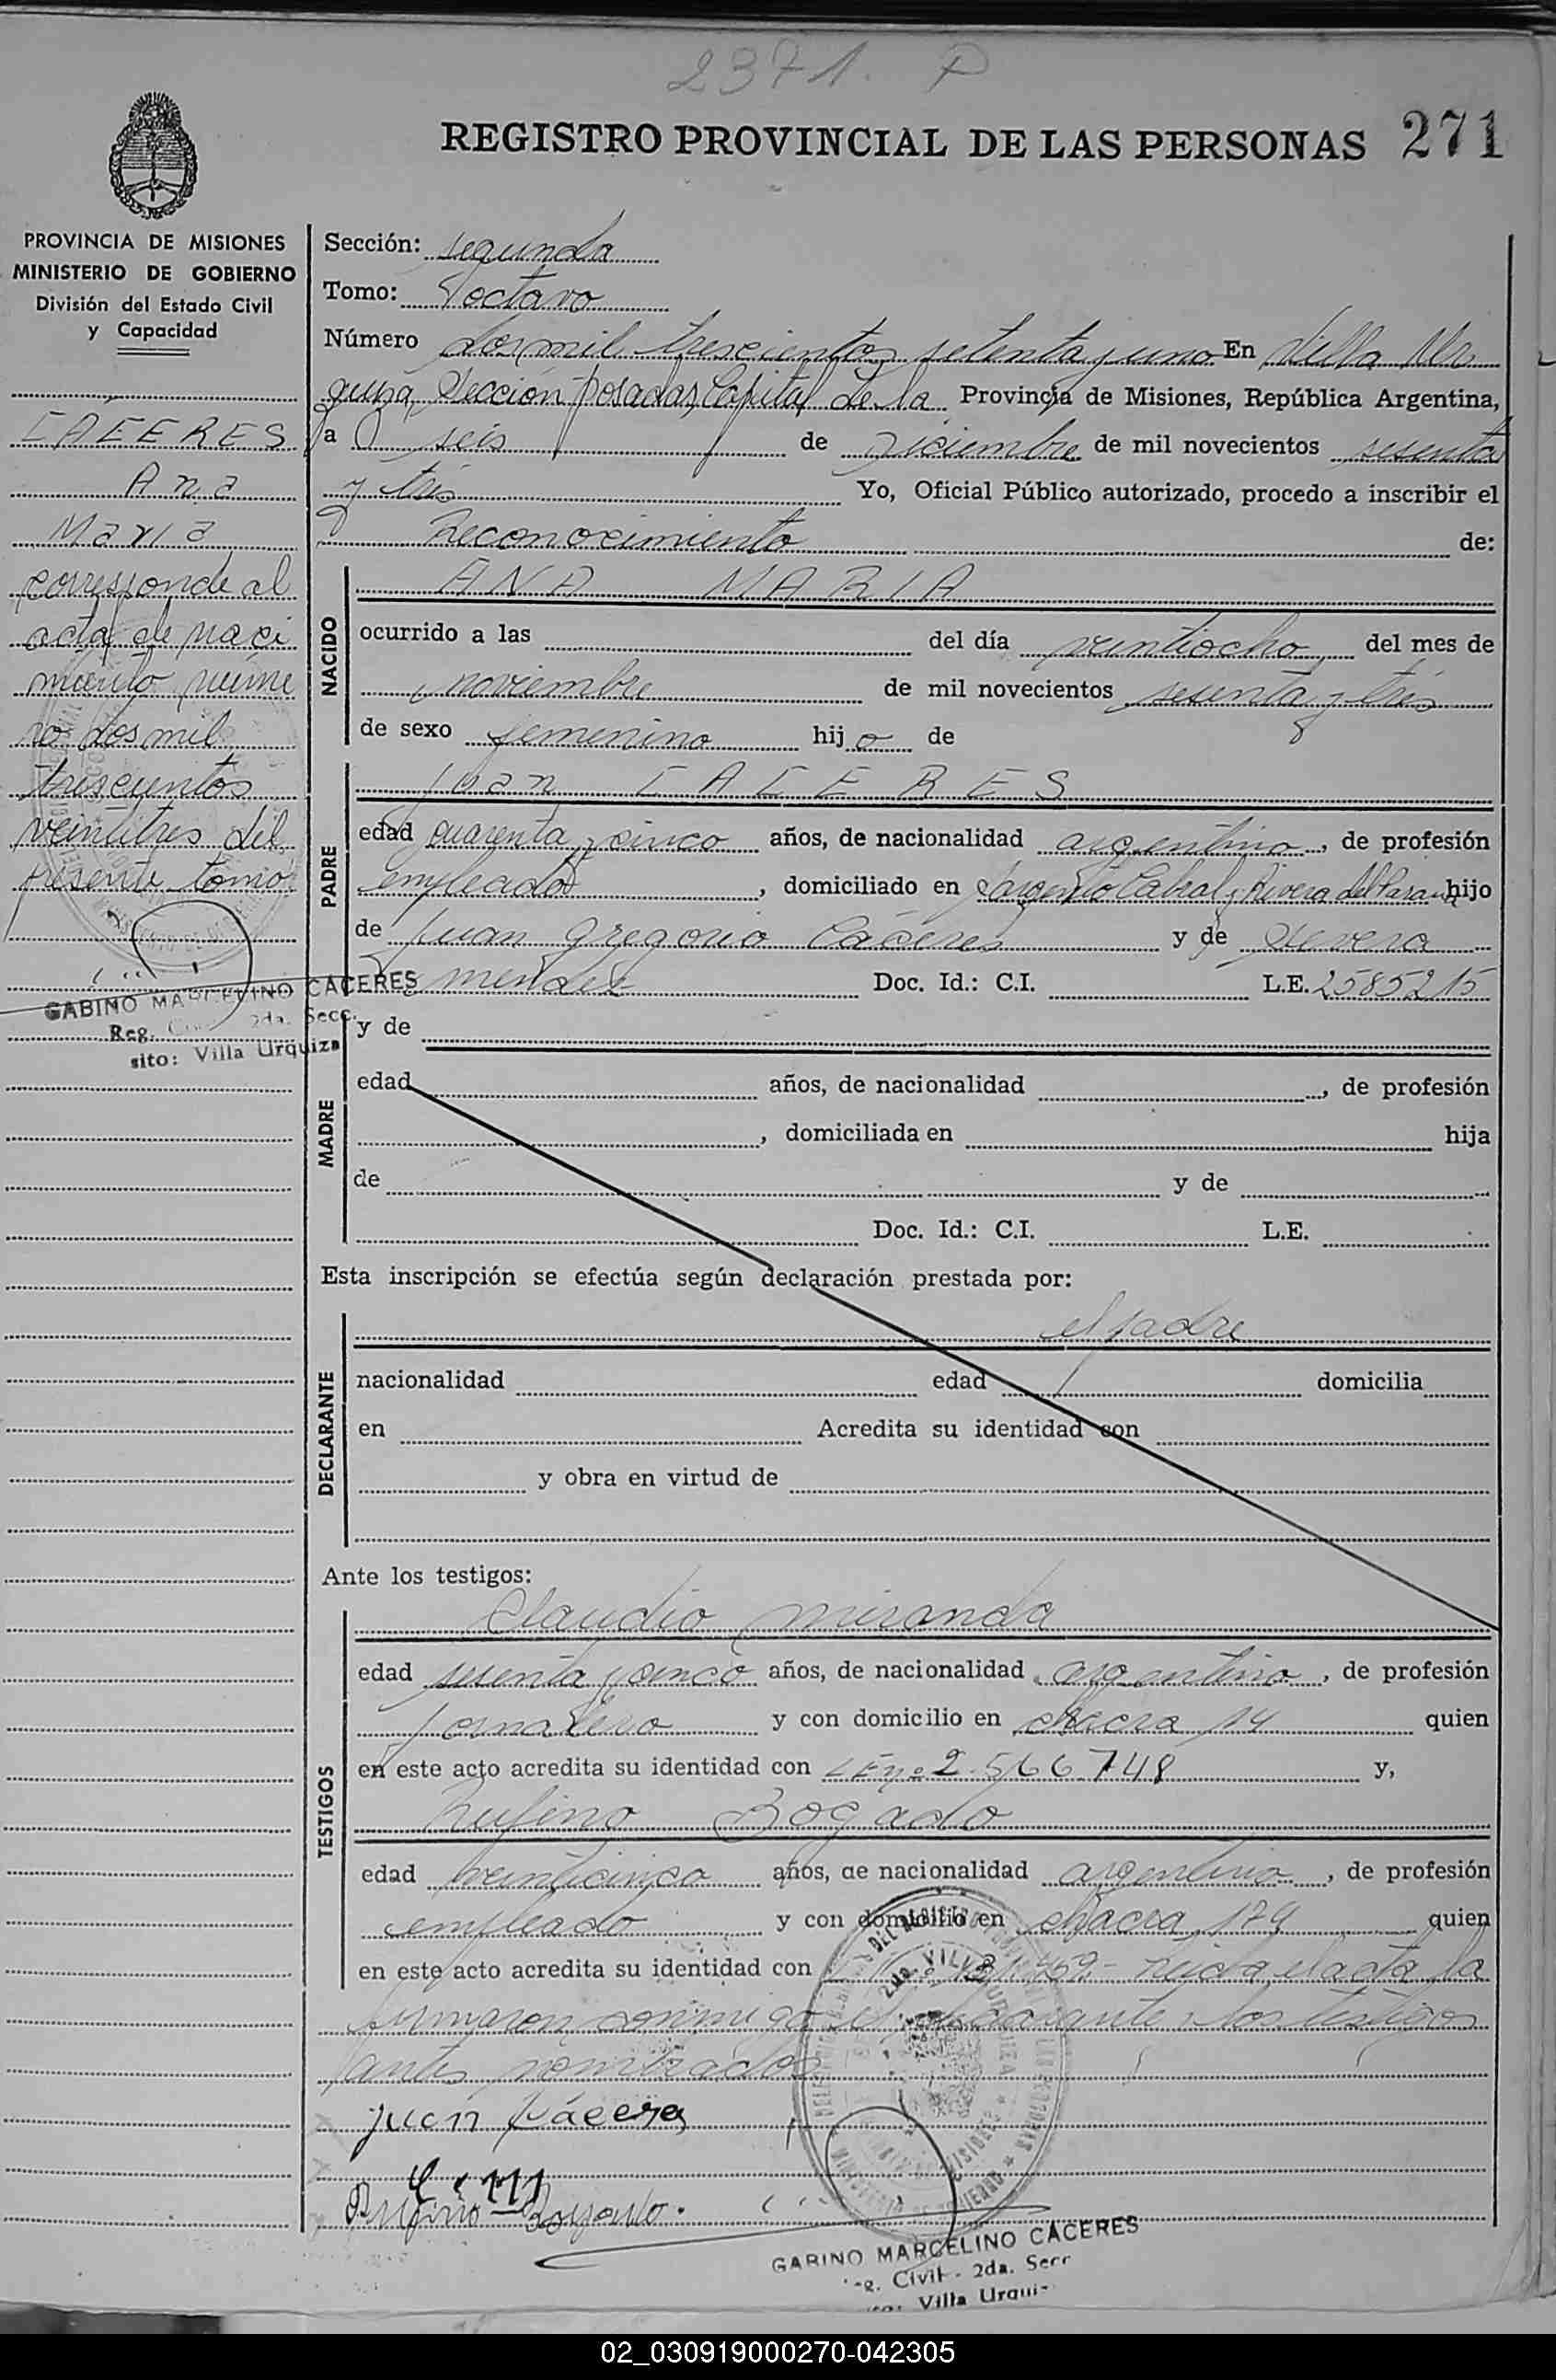 2371. P
REGISTRO PROVINCIAL DE LAS PERSONAS 271
PROVINCIA DE MISIONES
MINISTERIO DE GOBIERNO
División del Estado Civil
y Capacidad
CACERES
Ana
Maria
corresponde al
acta de naci
miento núme
ro dos mil
trescientos
veintitres del
presente tomo
GABINO MARCELINO CACERES
Reg. 2da. Secc.
sito: Villa Urquiza
Sección: segunda
Tomo: octavo
Número dos mil trescientos setenta y uno En Villa Ur
quiza, Sección Posadas, Capital de la Provincia de Misiones, República Argentina,
a seis de Diciembre de mil novecientos sesenta
y tres Yo, Oficial Público autorizado, procedo a inscribir el
Reconocimiento de:
NACIDO
ANA MARIA
ocurrido a las del día veintiocho del mes de
noviembre de mil novecientos sesenta y tres
de sexo femenino hija de
PADRE
Juan CACERES
edad cuarenta y cinco años, de nacionalidad argentino, de profesión
empleado, domiciliado en Sargento Cabral y Rivera del Parana hijo
de Juan Gregorio Cáceres y de
mendez Doc. Id.: C.I. L.E. 2585215
MADRE
y de
edad años, de nacionalidad , de profesión
, domiciliada en hija
de y de
Doc. Id.: C.I. L.E.
Esta inscripción se efectúa según declaración prestada por:
DECLARANTE
el padre
nacionalidad edad domicilia
en Acredita su identidad con
y obra en virtud de
Ante los testigos:
TESTIGOS
Claudio miranda
edad sesenta y cinco años, de nacionalidad argentino, de profesión
jornalero y con domicilio en chacra 14 quien
en este acto acredita su identidad con LE nº 2.566.748 y,
Rufino Bogado
edad veinticinco años, de nacionalidad argentino, de profesión
empleado y con domicilio en chacra 179 quien
en este acto acredita su identidad con leida el acta la
firmaron conmigo el declarante y los testigos
antes nombrados
Juan Cáceres
Rufino Bogado.
GABINO MARCELINO CACERES
Civil - 2da. Secc
Villa Urqui-
02_030919000270-042305